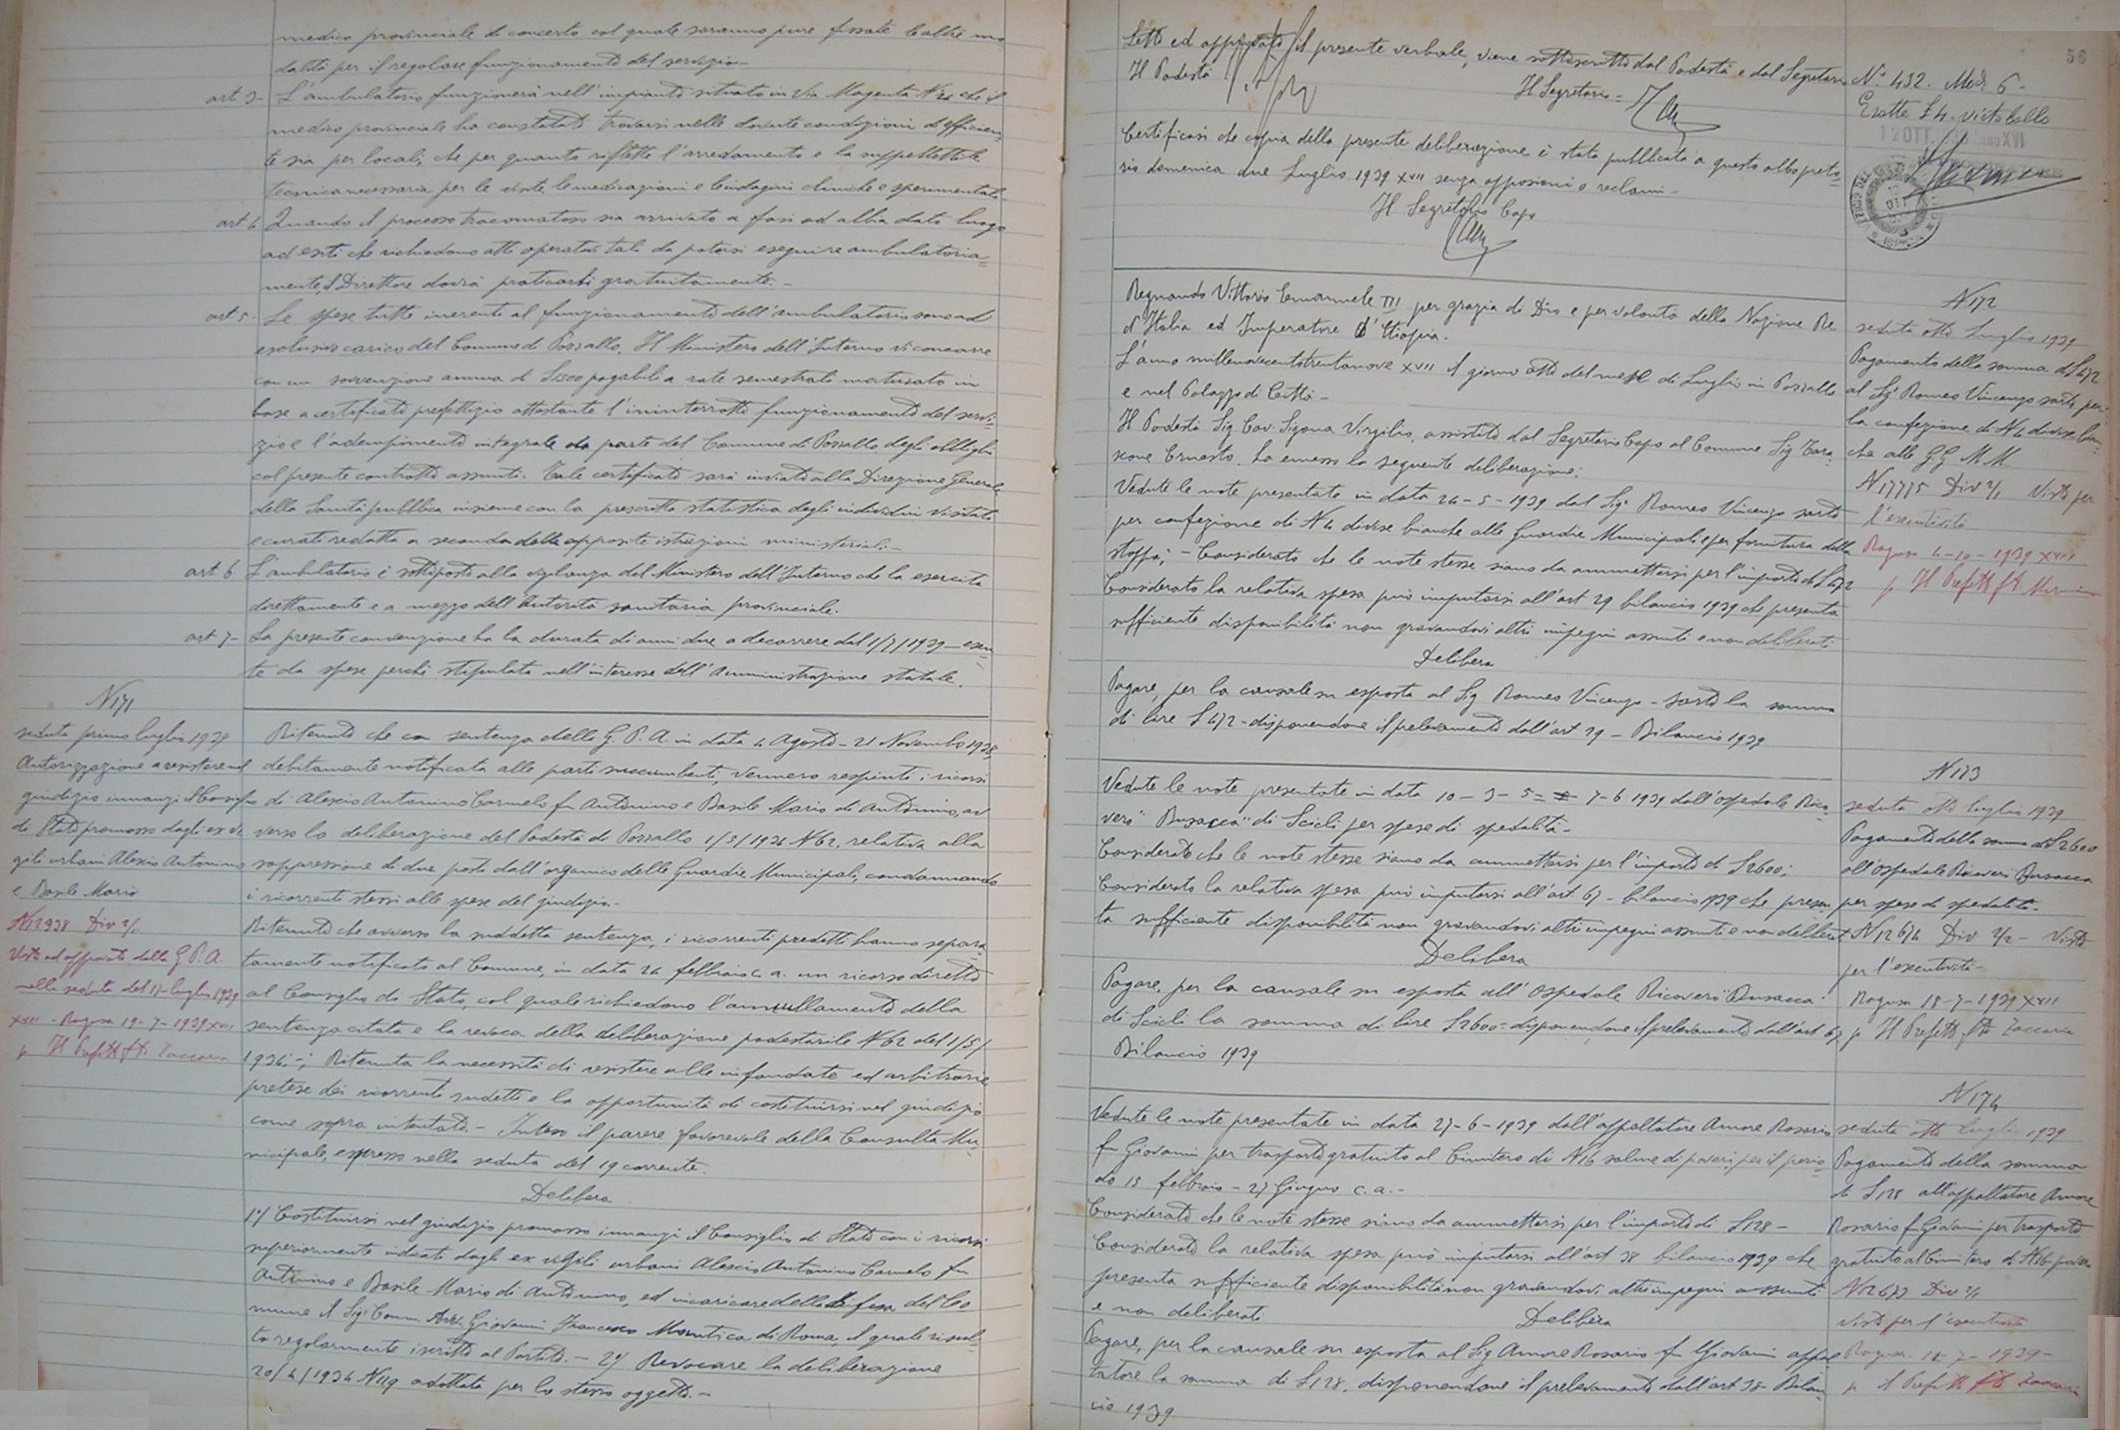 medico provinciale di concerto col quale saranno pure fissate le altre mo
dalità per il regolare funzionamento del servizio -
art 3 - L'ambulatorio funzionerà nell'impianto situato in Via Magenta N che il
medico provinciale ha constatato trovarsi nelle dovute condizioni d'efficien=
te sia per locali, che per quanto riflette l'arredamento e la suppellettile
tecnica necessaria per le visite le medicazioni e le indagini cliniche e sperimentali
art 4 Quando il processo tracomatoso sia arrivato a fasi od abbia dato luogo
ad esiti che richiedono atti operatori tali da potersi eseguire ambulatoria=
mente, il Direttore dovrà praticarli gratuitamente. -
art 5 - Le spese tutte inerenti al funzionamento dell'ambulatorio sono ad
esclusivo carico del Comune di Pozzallo. Il Ministero dell'Interno vi concorre
con un sovvenzione annua di £1500 pagabili a rate semestrali maturato in
base a certificato prefettizio attestante l'ininterrotto funzionamento del servi=
zio e l'adempimento integrale da parte del Comune di Pozzallo degli obblighi
col presente contratto assunti. Tale certificato sarà inviato alla Direzione Generale
della Sanità pubblica insieme con la prescritta statistica degli individui visitati
e curati redatta a seconda delle apposite istruzioni ministeriali. -
art 6 L'ambulatorio è sottoposto alla vigilanza del Ministero dell'Interno che la esercita
direttamente e a mezzo dell'Autorità sanitaria provinciale.
art 7 - La presente convenzione ha la durata di anni due a decorrere dal 1/7/1939 - esen=
te da spese perché stipulata nell'interesse dell'Amministrazione statale.
N 171
seduta primo luglio 1939
Autorizzazione a resistere nel
giudizio innanzi il Consiglio
di Stato promosso dagli ex vi
gili urbani Alescio Antonino
e Basile Mario
N 12938 Div 2/1
Visto ed approvato dalla G.P.A.
nella seduta del 17-luglio 1939
XVII - Ragusa 19-7-1939 XVII
p Il Prefetto fto Zaccaria
Ritenuto che con sentenza della G.P.A. in data 4 Agosto - 21 Novembre 1938,
debitamente notificata alle parti soccombenti, vennero respinti i ricorsi
di Alescio Antonino Carmelo fu Antonino e Basile Mario di Antonino, av
verso la deliberazione del Podestà di Pozzallo 1/5/1936 N 62, relativa alla
soppressione di due posti dall'organico delle Guardie Municipali, condannando
i ricorrenti stessi alle spese del giudizio. -
Ritenuto che avverso la suddetta sentenza, i ricorrenti predetti hanno separa=
tamente notificato al Comune, in data 24 febbraio c. a. un ricorso diretto
al Consiglio di Stato, col quale richiedono l'annullamento della
sentenza citata e la revoca della deliberazione podestarile N 62 del 1/5/
1936; -; Ritenuta la necessità di resistere alle infondate ed arbitrarie
pretese dei ricorrenti sudetti e la opportunità di costituirsi nel giudizio
come sopra intentato. - Inteso il parere favorevole della Consulta Mu=
nicipale, espresso nella seduta del 19 corrente.
Delibera
1°/ Costituirsi nel giudizio promosso innanzi il Consiglio di Stato con i ricorsi
superiormente indicati dagli ex vigili urbani Alescio Antonino Carmelo fu
Antonino e Basile Mario di Antonino, ed incaricare della difesa del Co
mune il Sig. Comm. Avv. Giovanni Francesco di Roma, il quale risul=
ta regolarmente iscritto al Partito. - 2°/ Revocare la deliberazione
N 119 adottata per lo stesso oggetto. -
56
Letto ed approvato il presente verbale, viene sottoscritto dal Podestà e dal Segretario
Il Podestà
Il Segretario =
Certificasi che copia della presente deliberazione è stata pubblicata a questo albo preto=
rio domenica due Luglio 1939 XVII senza opposizioni o reclami -
Il Segretario Capo
N° 432. Mod 6 -
Esatte £ 4. visto bollo
12 OTT
Regnando Vittorio Emanuele III per grazia di Dio e per volontà della Nazione Re
d'Italia ed Imperatore d'Etiopia.
L'anno millenovecentotrentanove XVII il giorno otto del mese di Luglio in Pozzallo
e nel Palazzo di Città -
Il Podestà Sig. Cav. Sigona Virgilio, assistito dal Segretario Capo al Comune Sig Tara=
scone Ernesto, ha emesso la seguente deliberazione:
Vedute le note presentate in data 24-5-1939 dal Sig. Romeo Vincenzo sarto
per confezione di N 4 divise bianche alle Guardie Municipali e per fornitura della
stoffa; - Considerato che le note stesse siano da ammettersi per l'importo di £ 472
Considerato la relativa spesa può imputarsi all'art 29 bilancio 1939 che presenta
sufficiente disponibilità non gravandovi altri impegni assunti e non deliberati
Delibera
Pagare, per la causale su esposta al Sig Romeo Vincenzo - sarto la somma
di lire £ 472 - disponendone il prelevamento dall'art 29 - Bilancio 1939
N 172
seduta otto Luglio 1939
Pagamento della somma di £ 472
al Sg. Romeo Vincenzo sarto per
la confezione di N 4 divise bian=
che alle G.G M.M
N 17775 Div 2/1 Visto per
l'esecutività
Ragusa 4-10-1939 XVII
p Il Prefetto fto
Vedute le note presentate in data 10-3-5= 7-6 1939 dall'ospedale Rico=
vero "Busacca" di Scicli per spese di spedalità -
Considerato che le note stesse siano da ammettersi per l'importo di £2600;
Considerato la relativa spesa può imputarsi all'art 67 - bilancio 1939 che presen
ta sufficiente disponibilità non gravandovi altri impegni assunti e non deliberati
Delibera
Pagare, per la causale su esposta all'Ospedale Ricovero "Busacca"
di Scicli la somma di lire £2600 - disponendone il prelevamento dall'art 67
Bilancio 1939
N 173
seduta otto luglio 1939
Pagamento della somma di £2600
all'ospedale Ricovero Busacca
per spese di spedalità -
N 12674 Div 2/2 - Visto
per l'esecutività -
Ragusa 18-7-1939 XVII
p Il Prefetto fto Zaccaria
Vedute le note presentate in data 27-6-1939 dall'appaltatore Amore Rosario
fu Giovanni per trasporto gratuito al Cimitero di N 16 salme di poveri, per il perio=
do 15 febbraio - 27 Giugno c.a. -
Considerato che le note stesse siano da ammettersi per l'importo di £128 -
Considerato la relativa spesa può imputarsi all'art 38 bilancio 1939 che
presenta sufficiente disponibilità non gravandovi altri impegni assunti
e non deliberati
Delibera
Pagare, per la causale su esposta al Sig Amore Rosario fu Giovanni appal
tatore la somma di £128, disponendone il prelevamento dall'art 38 - Bilan=
cio 1939
N 174
seduta otto Luglio 1939
Pagamento della somma
di £128 all'appaltatore Amore
Rosario fu Giovanni per trasporto
gratuito al Cimitero di N 16 poveri
N 12673 Div 2/1
visto per l'esecutività
Ragusa 18-7-1939 -
p Il Prefetto fto Zaccaria